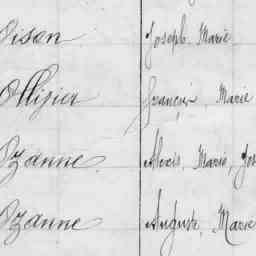 Oison Joseph, Marie
Ollivier François, Marie
Ozanne Alexis, Marie, Jos
Ozanne Auguste, Marie